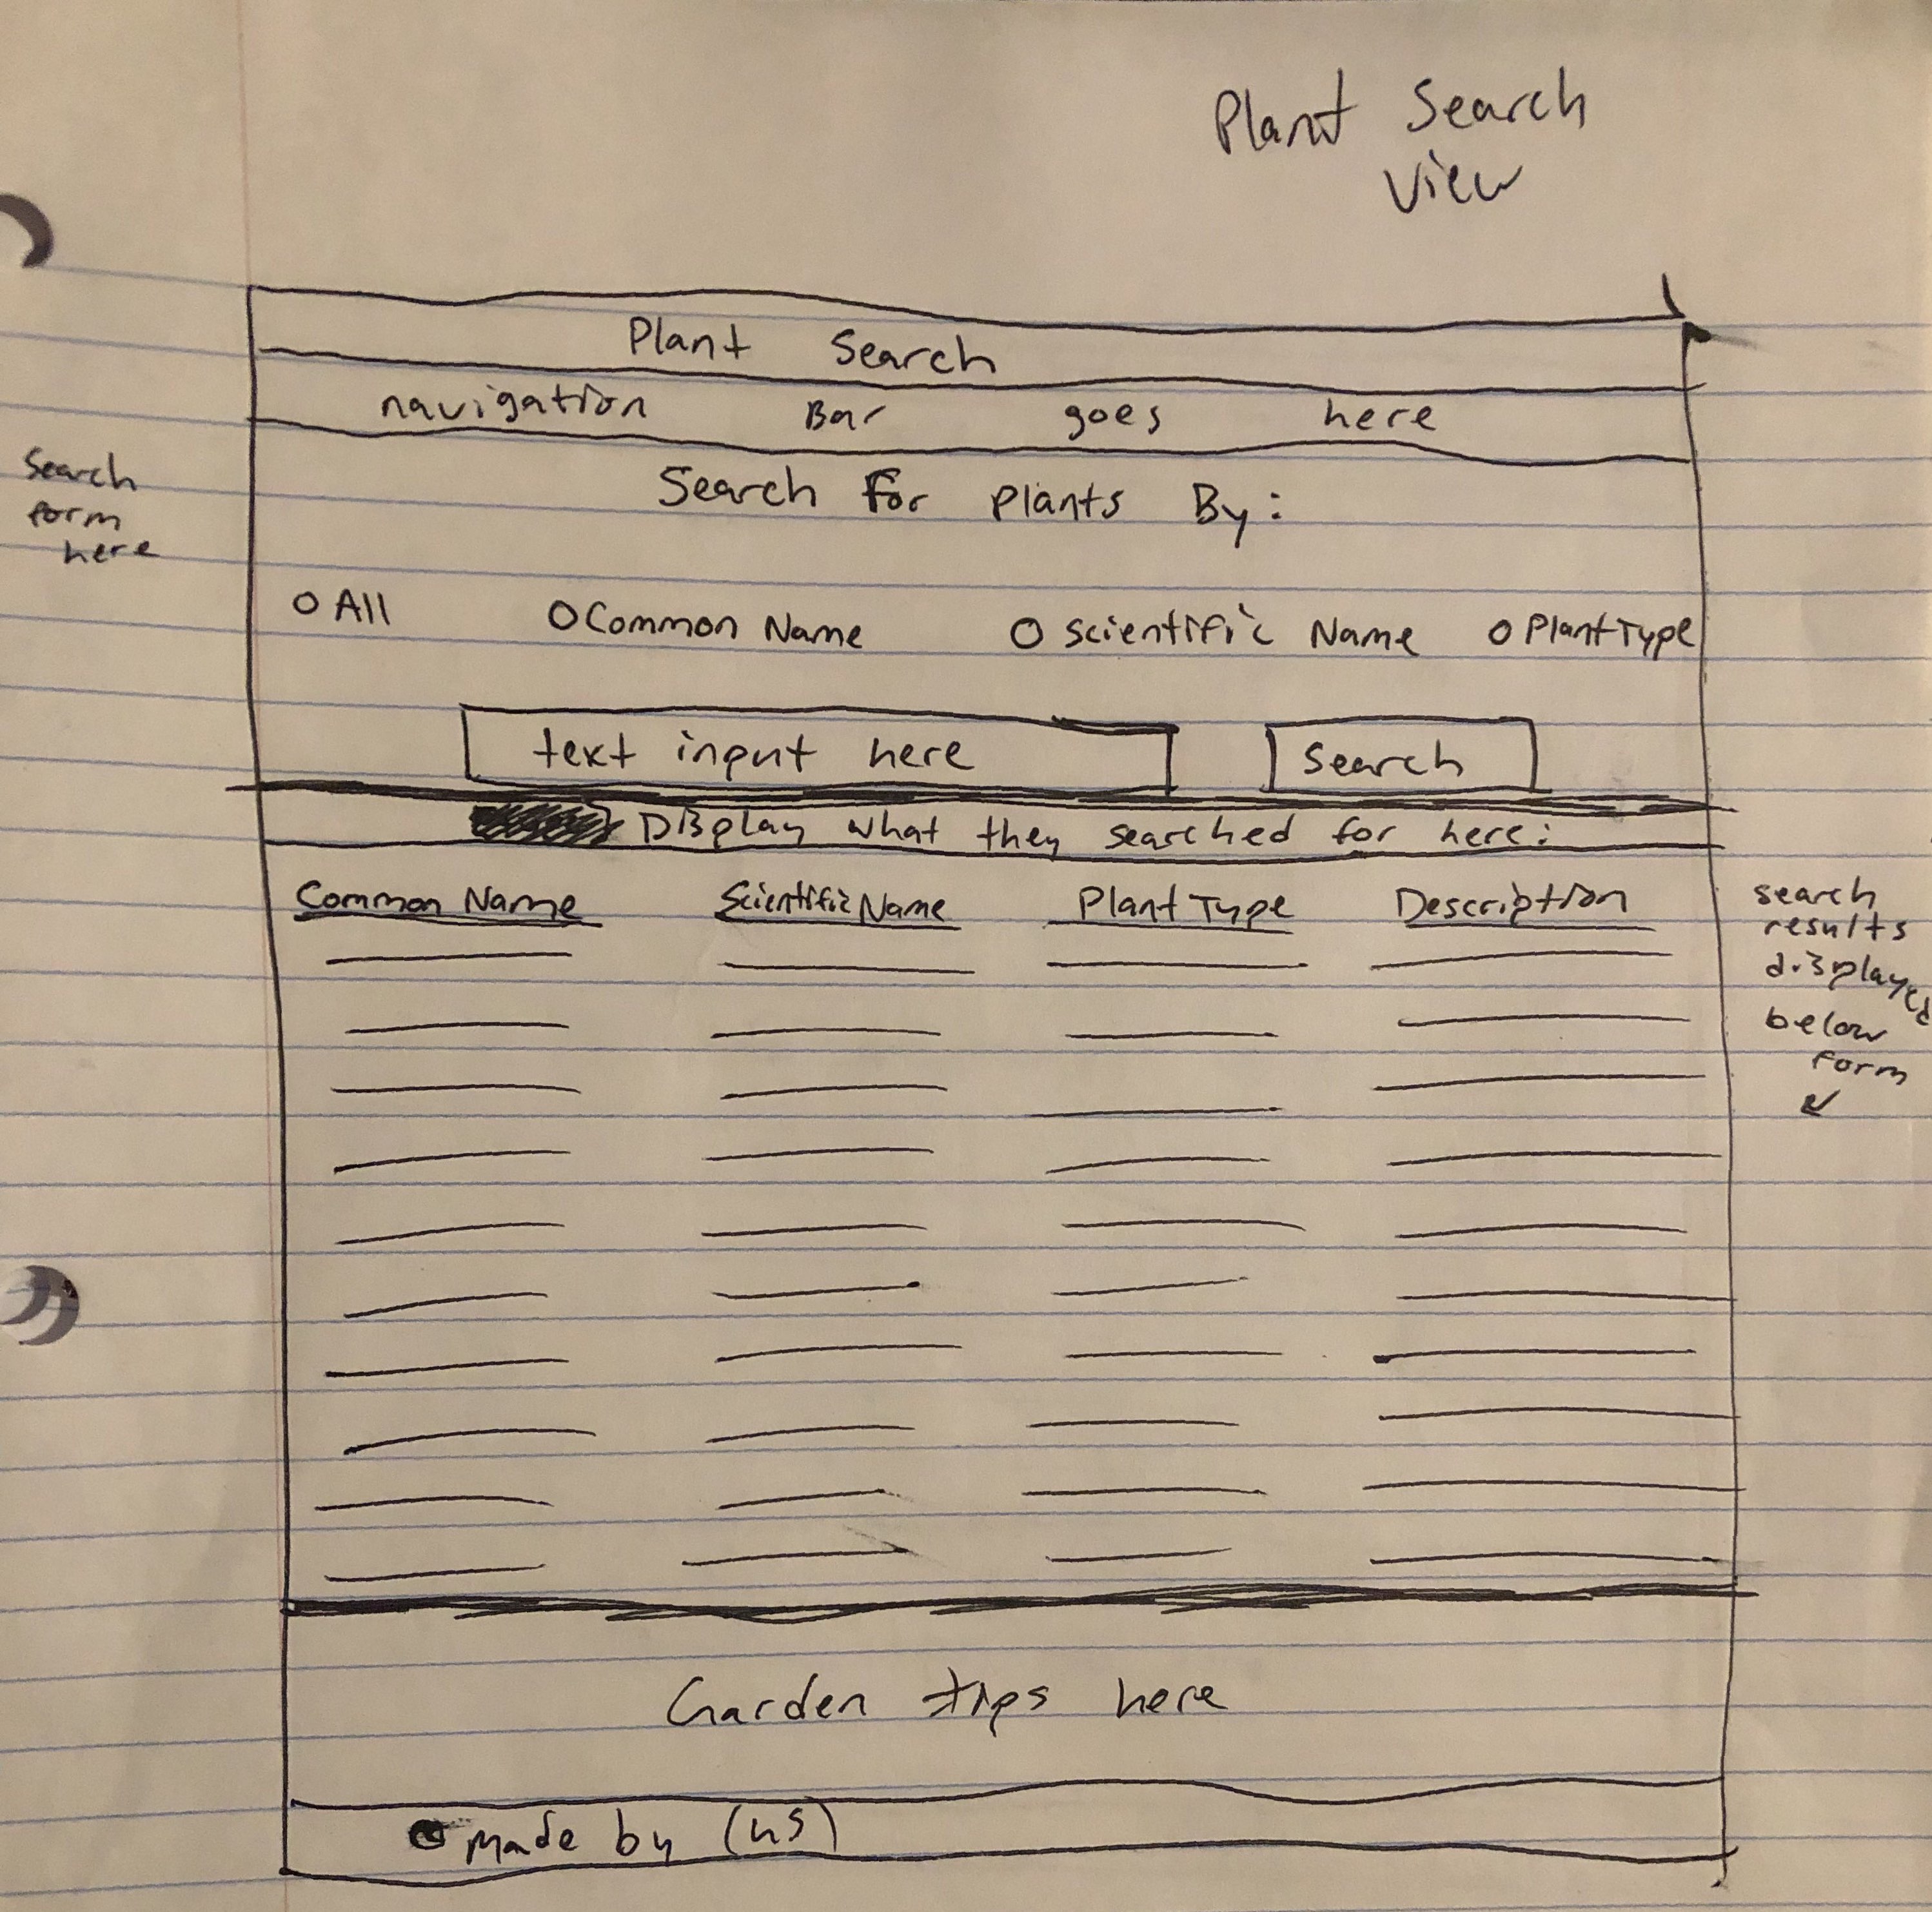 Plant Search
View
Plant Search
navigation Bar goes here
Search
form
here
Search For Plants By:
All Common Name Scientific Name Plant Type
text input here Search
Display what they searched for here:
Common Name Scientific Name Plant Type Description
search
results
displayed
below
form
Garden tips here
made by (us)